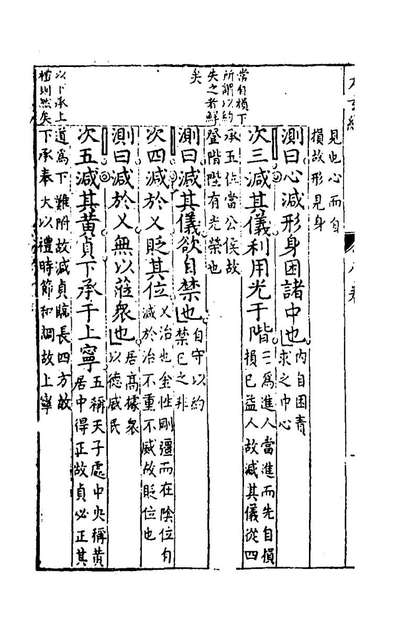 見也心而自
損故形見身
測曰心減形身困諸中也 內自困責
求之中心
次三減其儀利用光于階 三為進人當進而先自損
損已益人故減其儀從四
承五位當公侯故
登階陛有光榮也
所謂以約
失之者鮮
矣
測曰減其儀欲自禁也 自守以約
禁已之非
次四減於乂貶其位 乂治也金性剛彊而在陰位自
減於治不重不威故貶位也
測曰減於乂無以蒞衆也 居高據衆
以德威民
次五減其黃貞下承于上寧 五稱天子處中央稱黃
居中得正故貞必正其
道為下難附故減貞長四方故
下承奉大以禮時節和調故上寧
以下承上
則然矣